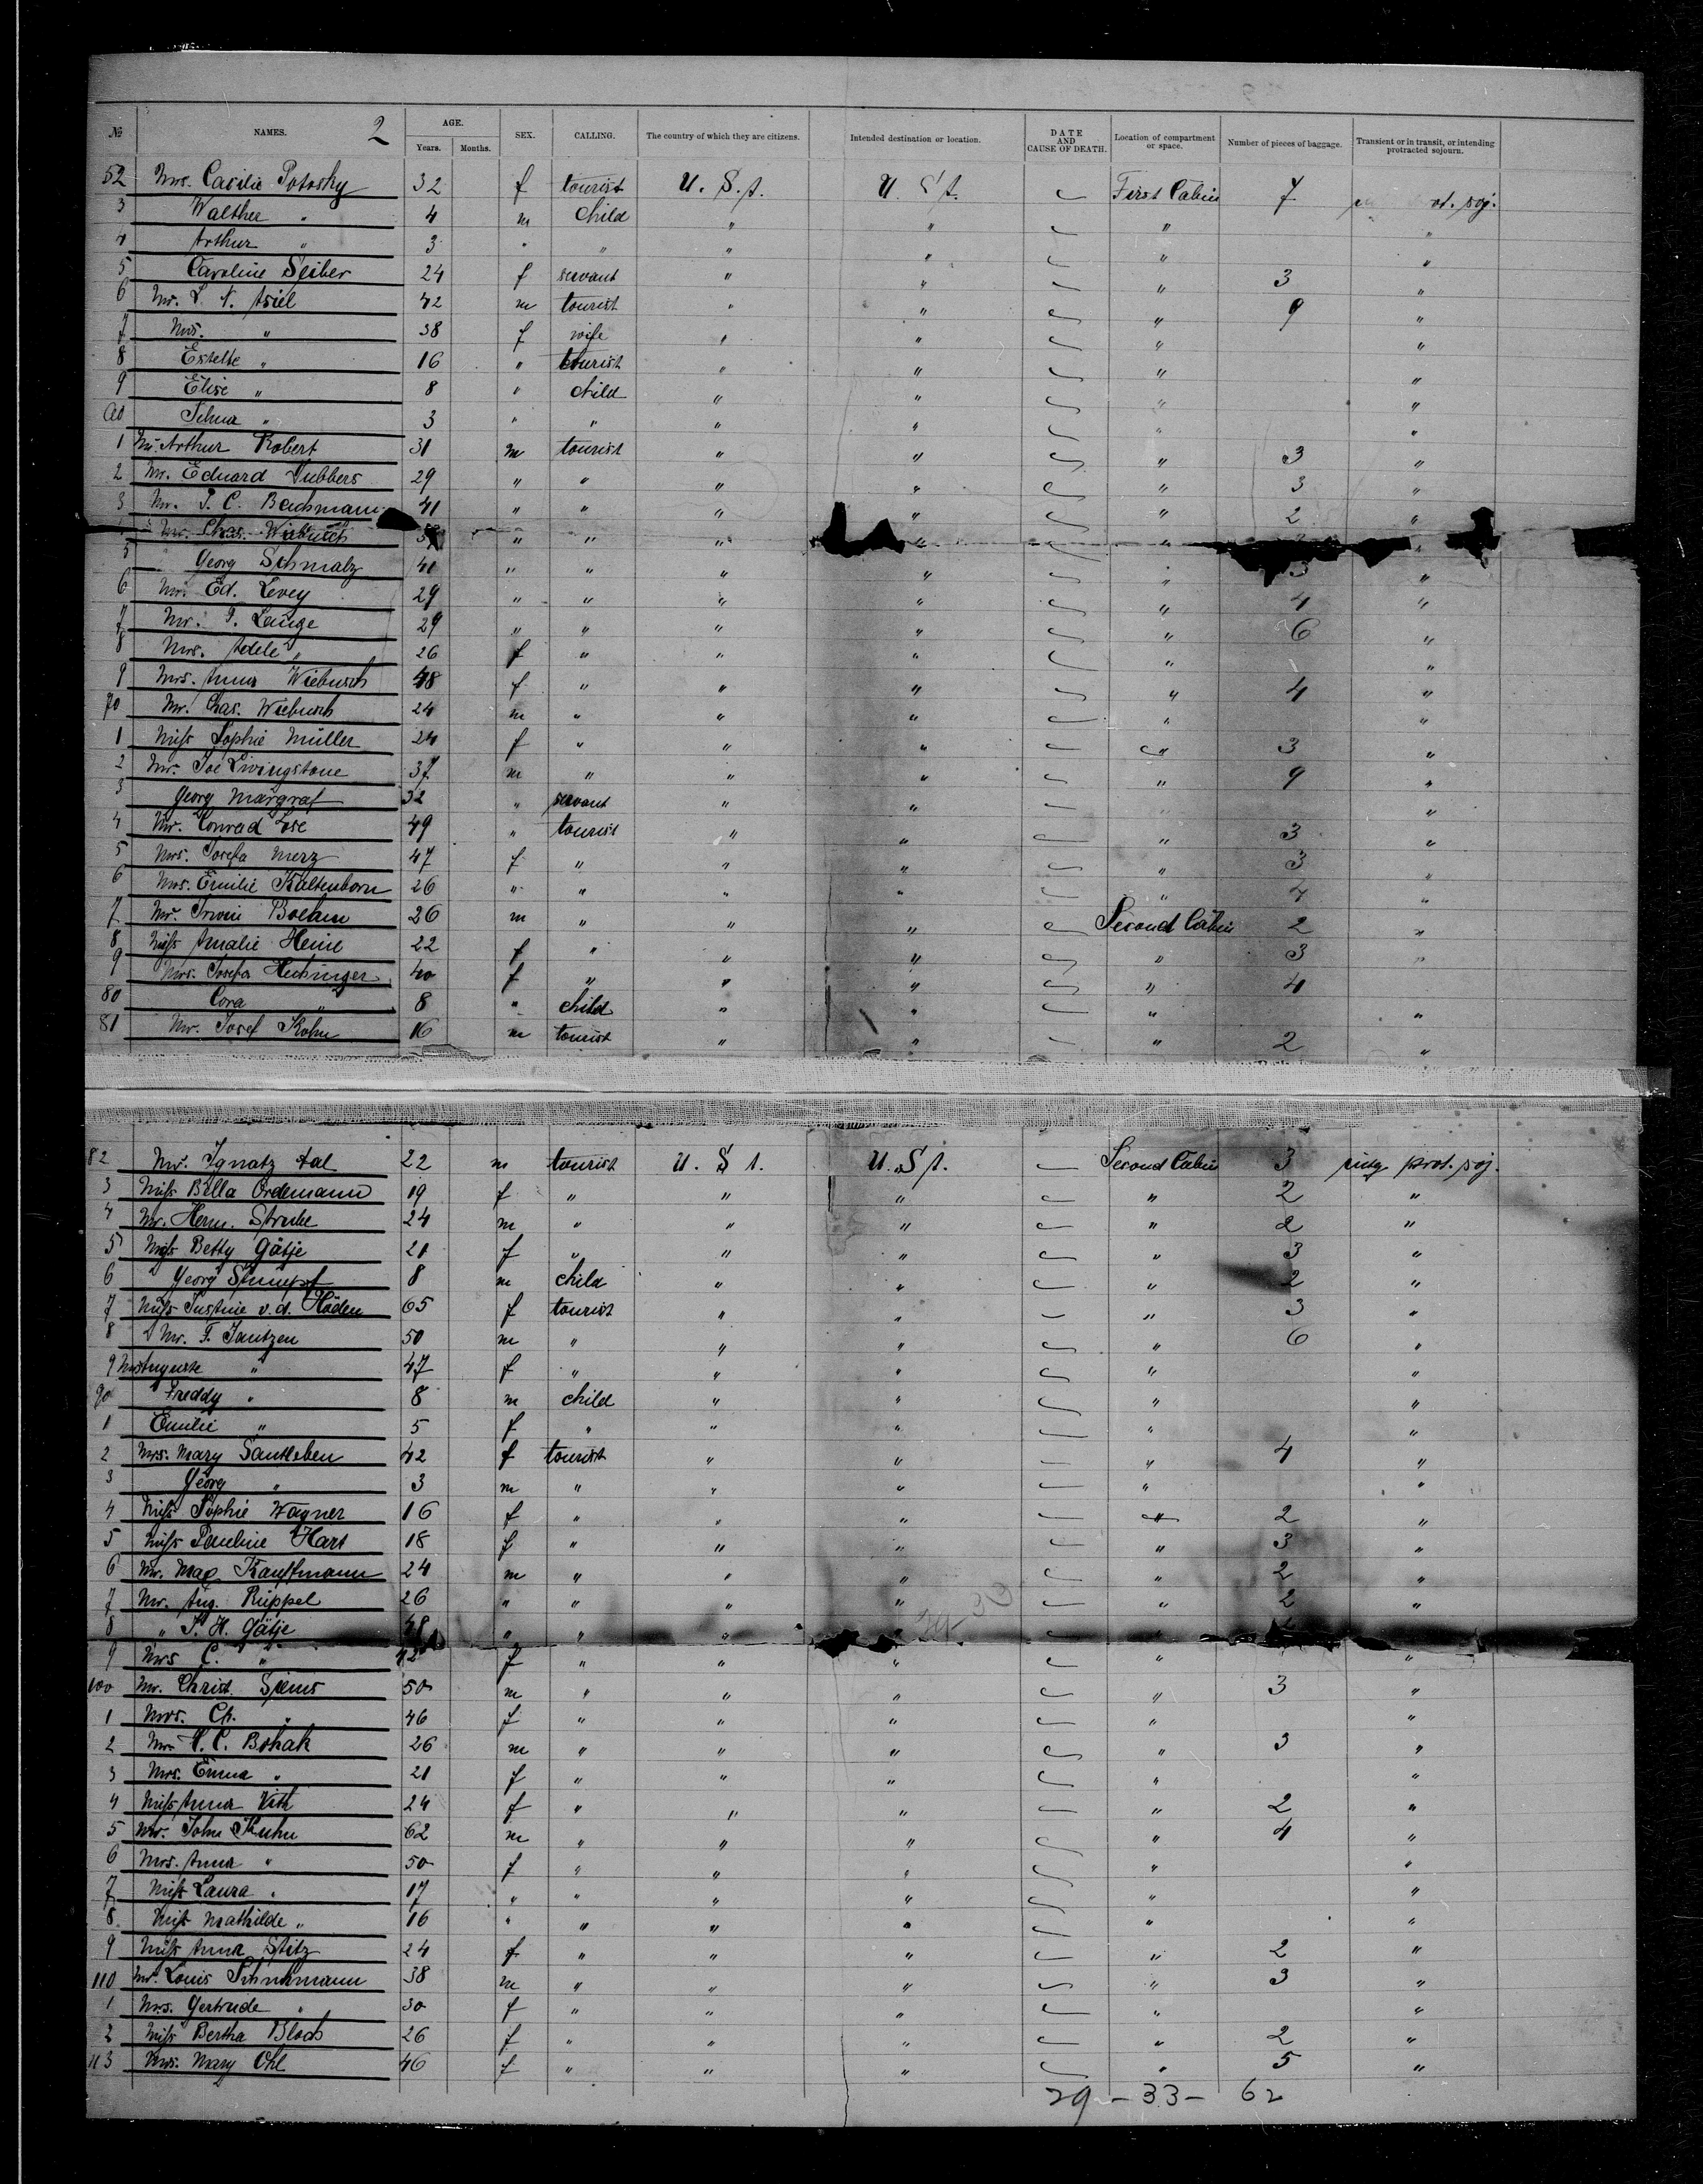 No. NAMES. 2 AGE. Years. Months. SEX. CALLING. The country of which they are citizens. Intended destination or location. DATE AND CAUSE OF DEATH. Location of compartment or space. Number of pieces of baggage. Transient or in transit, or intending protracted sojourn.
52 Mrs. Cacilie Potosky 32 f tourist U. S. A. U S A. First Cabin 7 prot. soj.
3 Walther " 4 m child " " " "
4 Arthur " 3 " " " " "
5 Caroline Seiber 24 f servant " " " 3 "
6 Mr. L. N. Asiel 42 m tourist " " " 9 "
7 Mrs. " 38 f wife " " " "
8 Estelle " 16 " tourist " " " "
9 Elise " 8 " child " " " "
60 Selma " 3 " " " " " "
1 Mr. Arthur Robert 31 m tourist " " " 3 "
2 Mr. Eduard Dubbers 29 " " " " " 3 "
3 Mr. I. C. Bachmann 41 " " " " " 2 "
Mr. Chas. Wiebusch " " " " "
5 Georg Schmalz 41 " " " " " 3 "
6 Mr. Ed. Levey 29 " " " " " 4 "
7 Mr. P. Lange 29 " " " " " 6 "
8 Mrs. Adele " 26 f " " " " "
9 Mrs. Anna Wiebusch 48 f " " " " 4 "
70 Mr. Chas. Wiebusch 24 m " " " " "
1 Miss Sophie Müller 24 f " " " " 3 "
2 Mr. Joe Livingstone 37 m " " " " 9 "
3 Georg Margraf 32 " servant " " "
4 Mr. Conrad Lose 49 " tourist " " " 3 "
5 Mrs. Josefa Merz 47 f " " " " 3 "
6 Mrs. Emilie Kaltenborn 26 " " " " " 4 "
7 Mr. Irwin Boehm 26 m " " " Second Cabin 2 "
8 Miss Amalie Heine 22 f " " " " 3 "
9 Mrs. Josefa Hechinger 40 f " " " " 4
80 Cora " 8 " child " " " "
81 Mr. Josef Kohn 16 m tourist " " " 2 "
82 Mr. Ignatz Aal 22 m tourist U. S A. U. S A. Second Cabin 3 prot. soj.
3 Miss Bella Ordemann 19 f " " " " 2 "
4 Mr. Herm. Strube 24 m " " " " 2 "
5 Miss Betty Gätje 21 f " " " " 3 "
6 Georg Stumpf 8 m child " " " 2 "
7 Miss Justine v. d. Höden 65 f tourist " " " 3 "
8 Mr. F. Jantzen 50 m " " " " 6 "
9 Mrs Auguste " 47 f " " " " "
90 Freddy " 8 m child " " " "
1 Emilie " 5 f " " " " "
2 Mrs. Mary Santleben 42 f tourist " " " 4 "
3 Georg " 3 m " " " " "
4 Miss Sophie Wagner 16 f " " " " 2 "
5 Miss Pauline Hart 18 f " " " " 3 "
6 Mr. Max Kauffmann 24 m " " " " 2 "
7 Mr. Aug. Rüppel 26 " " " " " 2 "
8 " I. H. Gätje 48 " " " " "
9 Mrs C. " 42 f " " " " "
100 Mr. Christ. Siems 50 m " " " " 3 "
1 Mrs. Ch. " 46 f " " " " "
2 Mr. H. C. Bohak 26 m " " " " 3 "
3 Mrs. Emma " 21 f " " " " "
4 Miss Anna Vith 24 f " " " " 2 "
5 Mr. John Kuhn 62 m " " " " 4 "
6 Mrs. Anna " 50 f " " " " "
7 Miss Laura " 17 " " " " " "
8 Miss Mathilde " 16 " " " " " "
9 Miss Anna Stitz 24 f " " " " 2 "
110 Mr. Louis Schuhmann 38 m " " " " 3 "
1 Mrs. Gertrude " 30 f " " " " "
2 Miss Bertha Bloch 26 f " " " " 2 "
113 Mrs. Mary Ohl 46 f " " " " 5 "
29 - 33 - 62